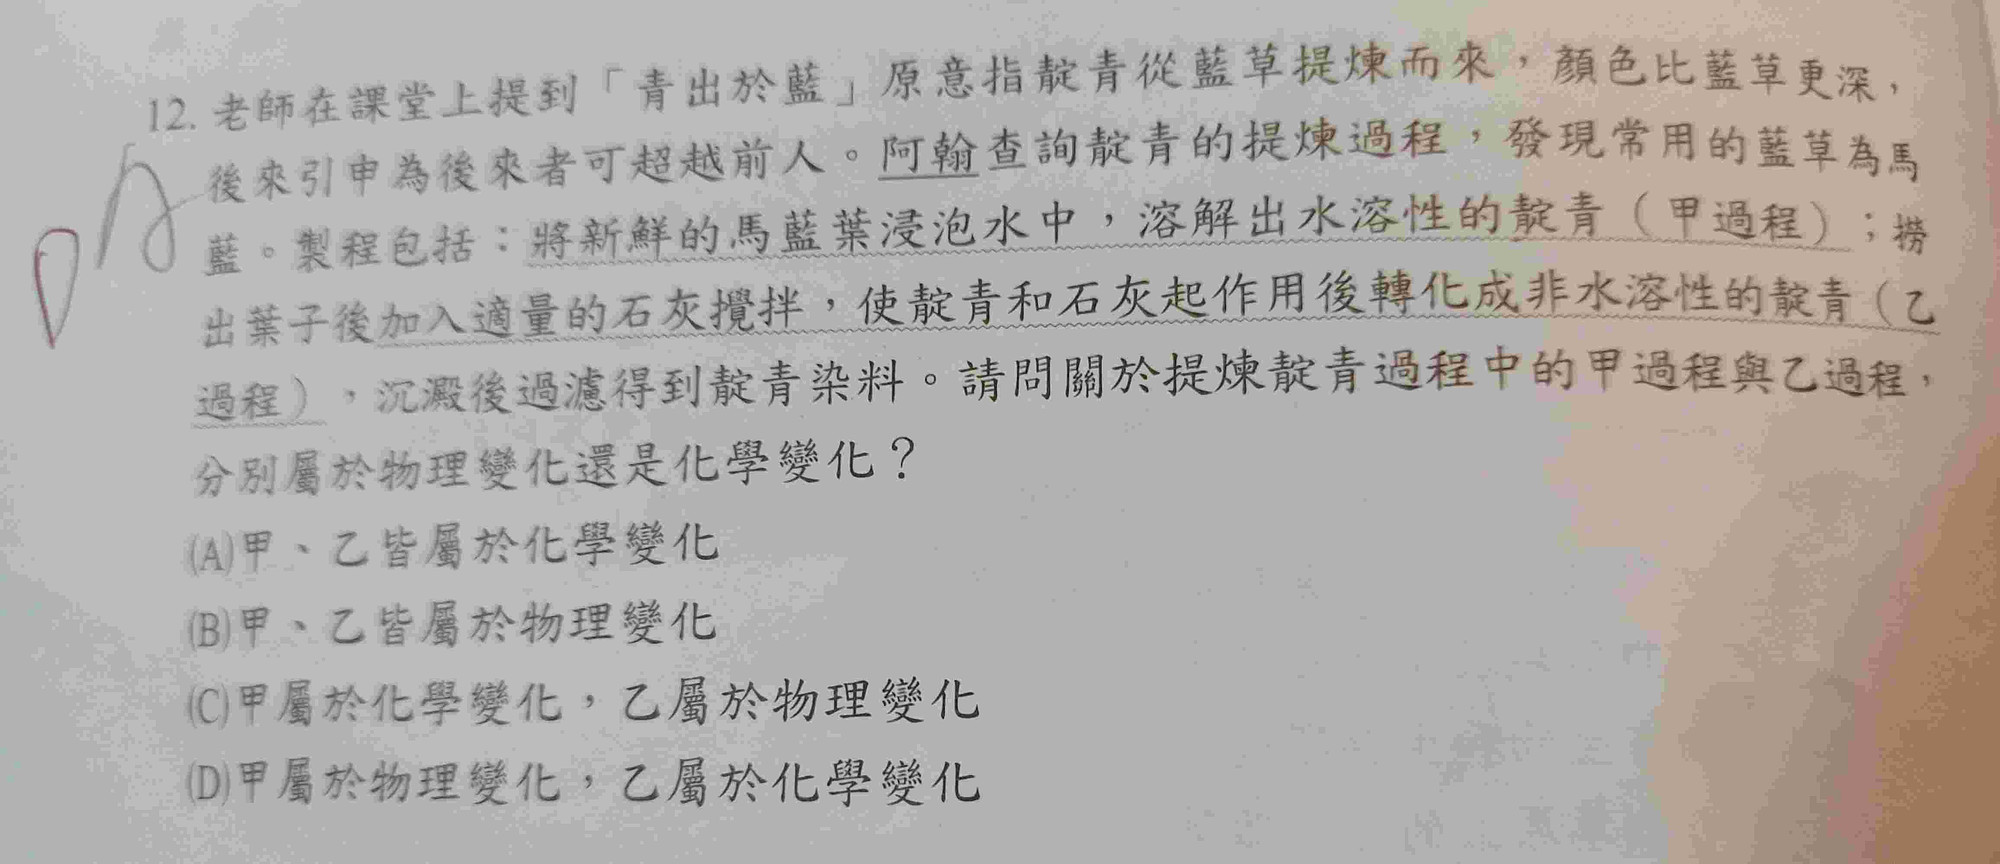 12. 老師在課堂上提到「青出於藍」原意指靛青從藍草提煉而來，顏色比藍草更深，
後來引申為後來者可超越前人。阿翰查詢靛青的提煉過程，發現常用的藍草為馬
藍。製程包括：將新鮮的馬藍葉浸泡水中，溶解出水溶性的靛青（甲過程）；撈
出葉子後加入適量的石灰攪拌，使靛青和石灰起作用後轉化成非水溶性的靛青（乙
過程），沉澱後過濾得到靛青染料。請問關於提煉靛青過程中的甲過程與乙過程，
分別屬於物理變化還是化學變化？
(A)甲、乙皆屬於化學變化
(B)甲、乙皆屬於物理變化
(C)甲屬於化學變化，乙屬於物理變化
(D)甲屬於物理變化，乙屬於化學變化